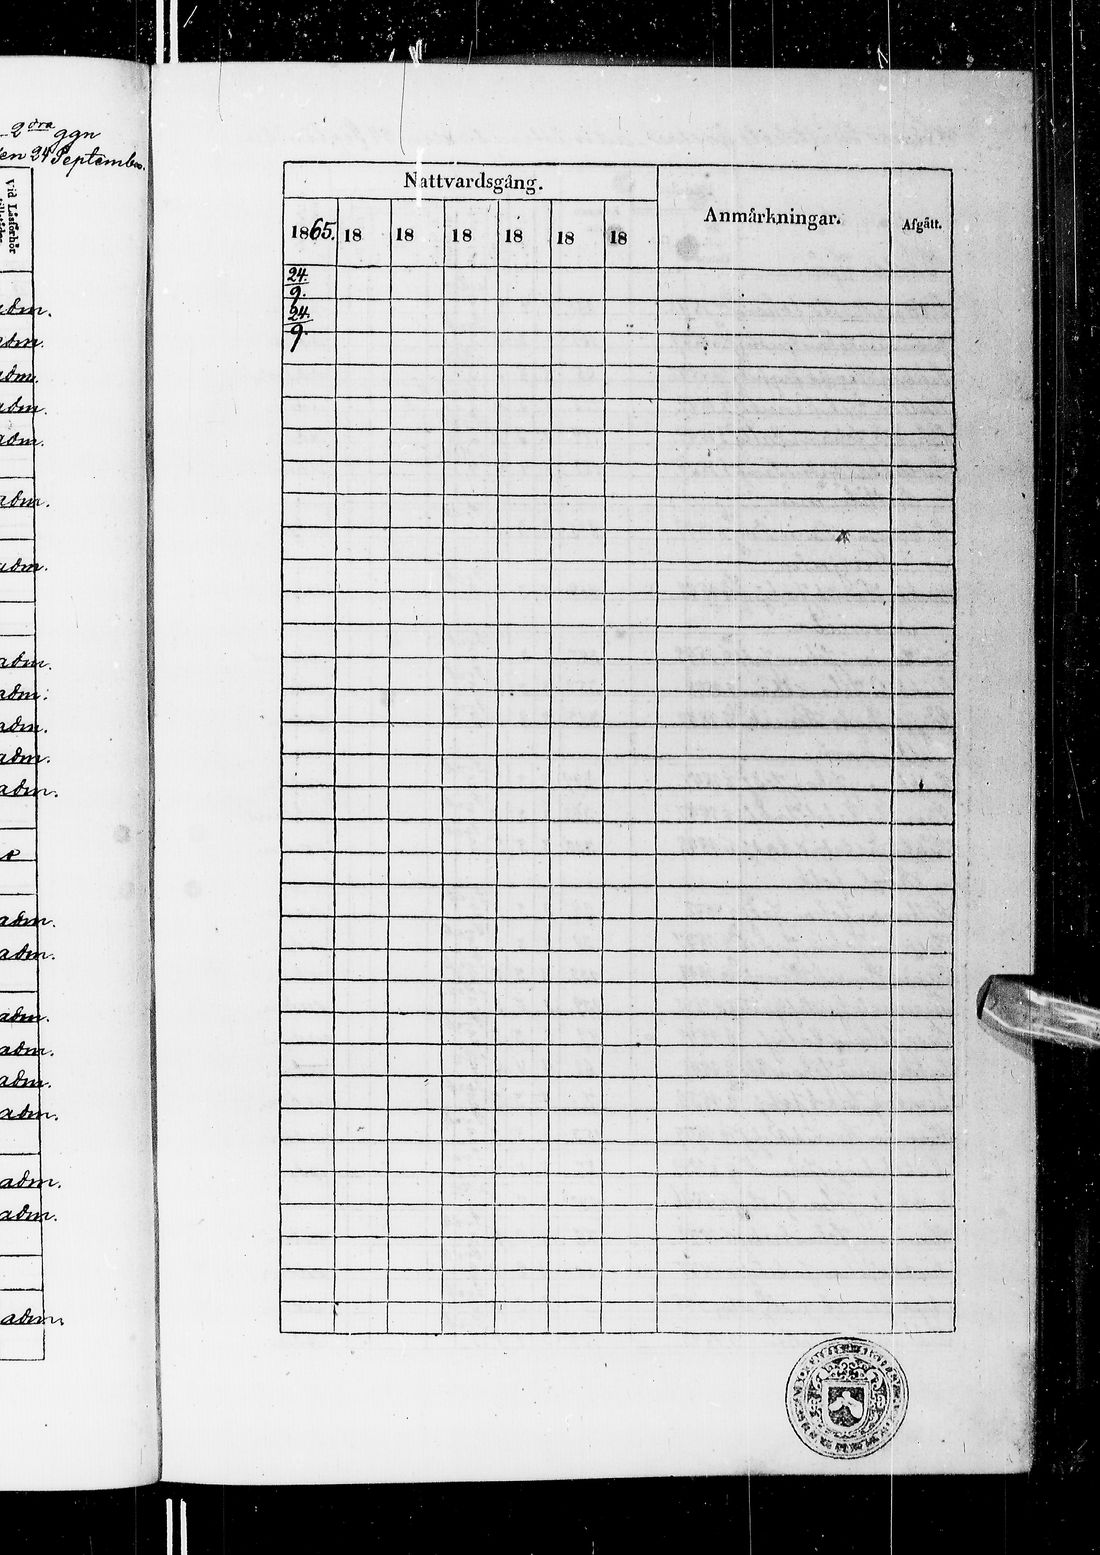 2dra ggn
en 24 September.
Vid Läsförhör
adm.
adm.
adm.
adm.
adm.
adm.
adm.
adm.
adm:
adm.
adm.
adm.
adm.
adm.
adm.
adm.
adm.
adm.
adm.
adm.
adm.
Nattvardsgång.
Anmärkningar.
Afgått.
1865. 18 18 18 18 18 18
24.
9.
24.
9.